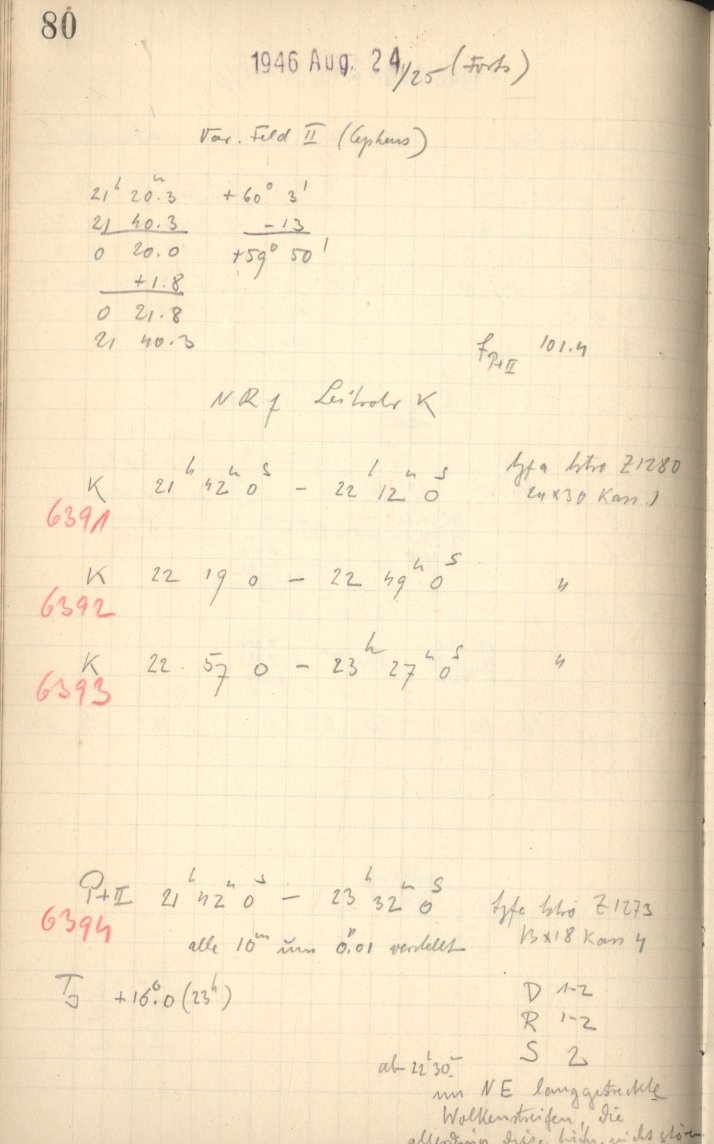 80
1946 Aug. 24/25 (Forts)
Var. Feld II (Cepheus)
21h 20m.3 +60° 3'
21 40.3 -13
0 20.0 +59° 50'
+1.8
0 21.8
21 40.3
fP+II 101.4
Leitrohr K
K 21h 42m 0s - 22h 12m 0s Agfa Astro Z1280
6391 24x30 Kass 1
K 22 19 0 - 22 49m 0s "
6392
K 22 57 0 - 23h 27m 0s "
6393
P+II 21h 42m 0s - 23h 32m 0s Agfa Astro Z1273
6394 13x18 Kass 4
alle 10m um 0.01 verstellt
+16°.0 (23h)
D 1-2
R 1-2
S 2
ab 22h30m
im NE langgestreckte
Wolkenstreifen, die
allerdings nicht stören